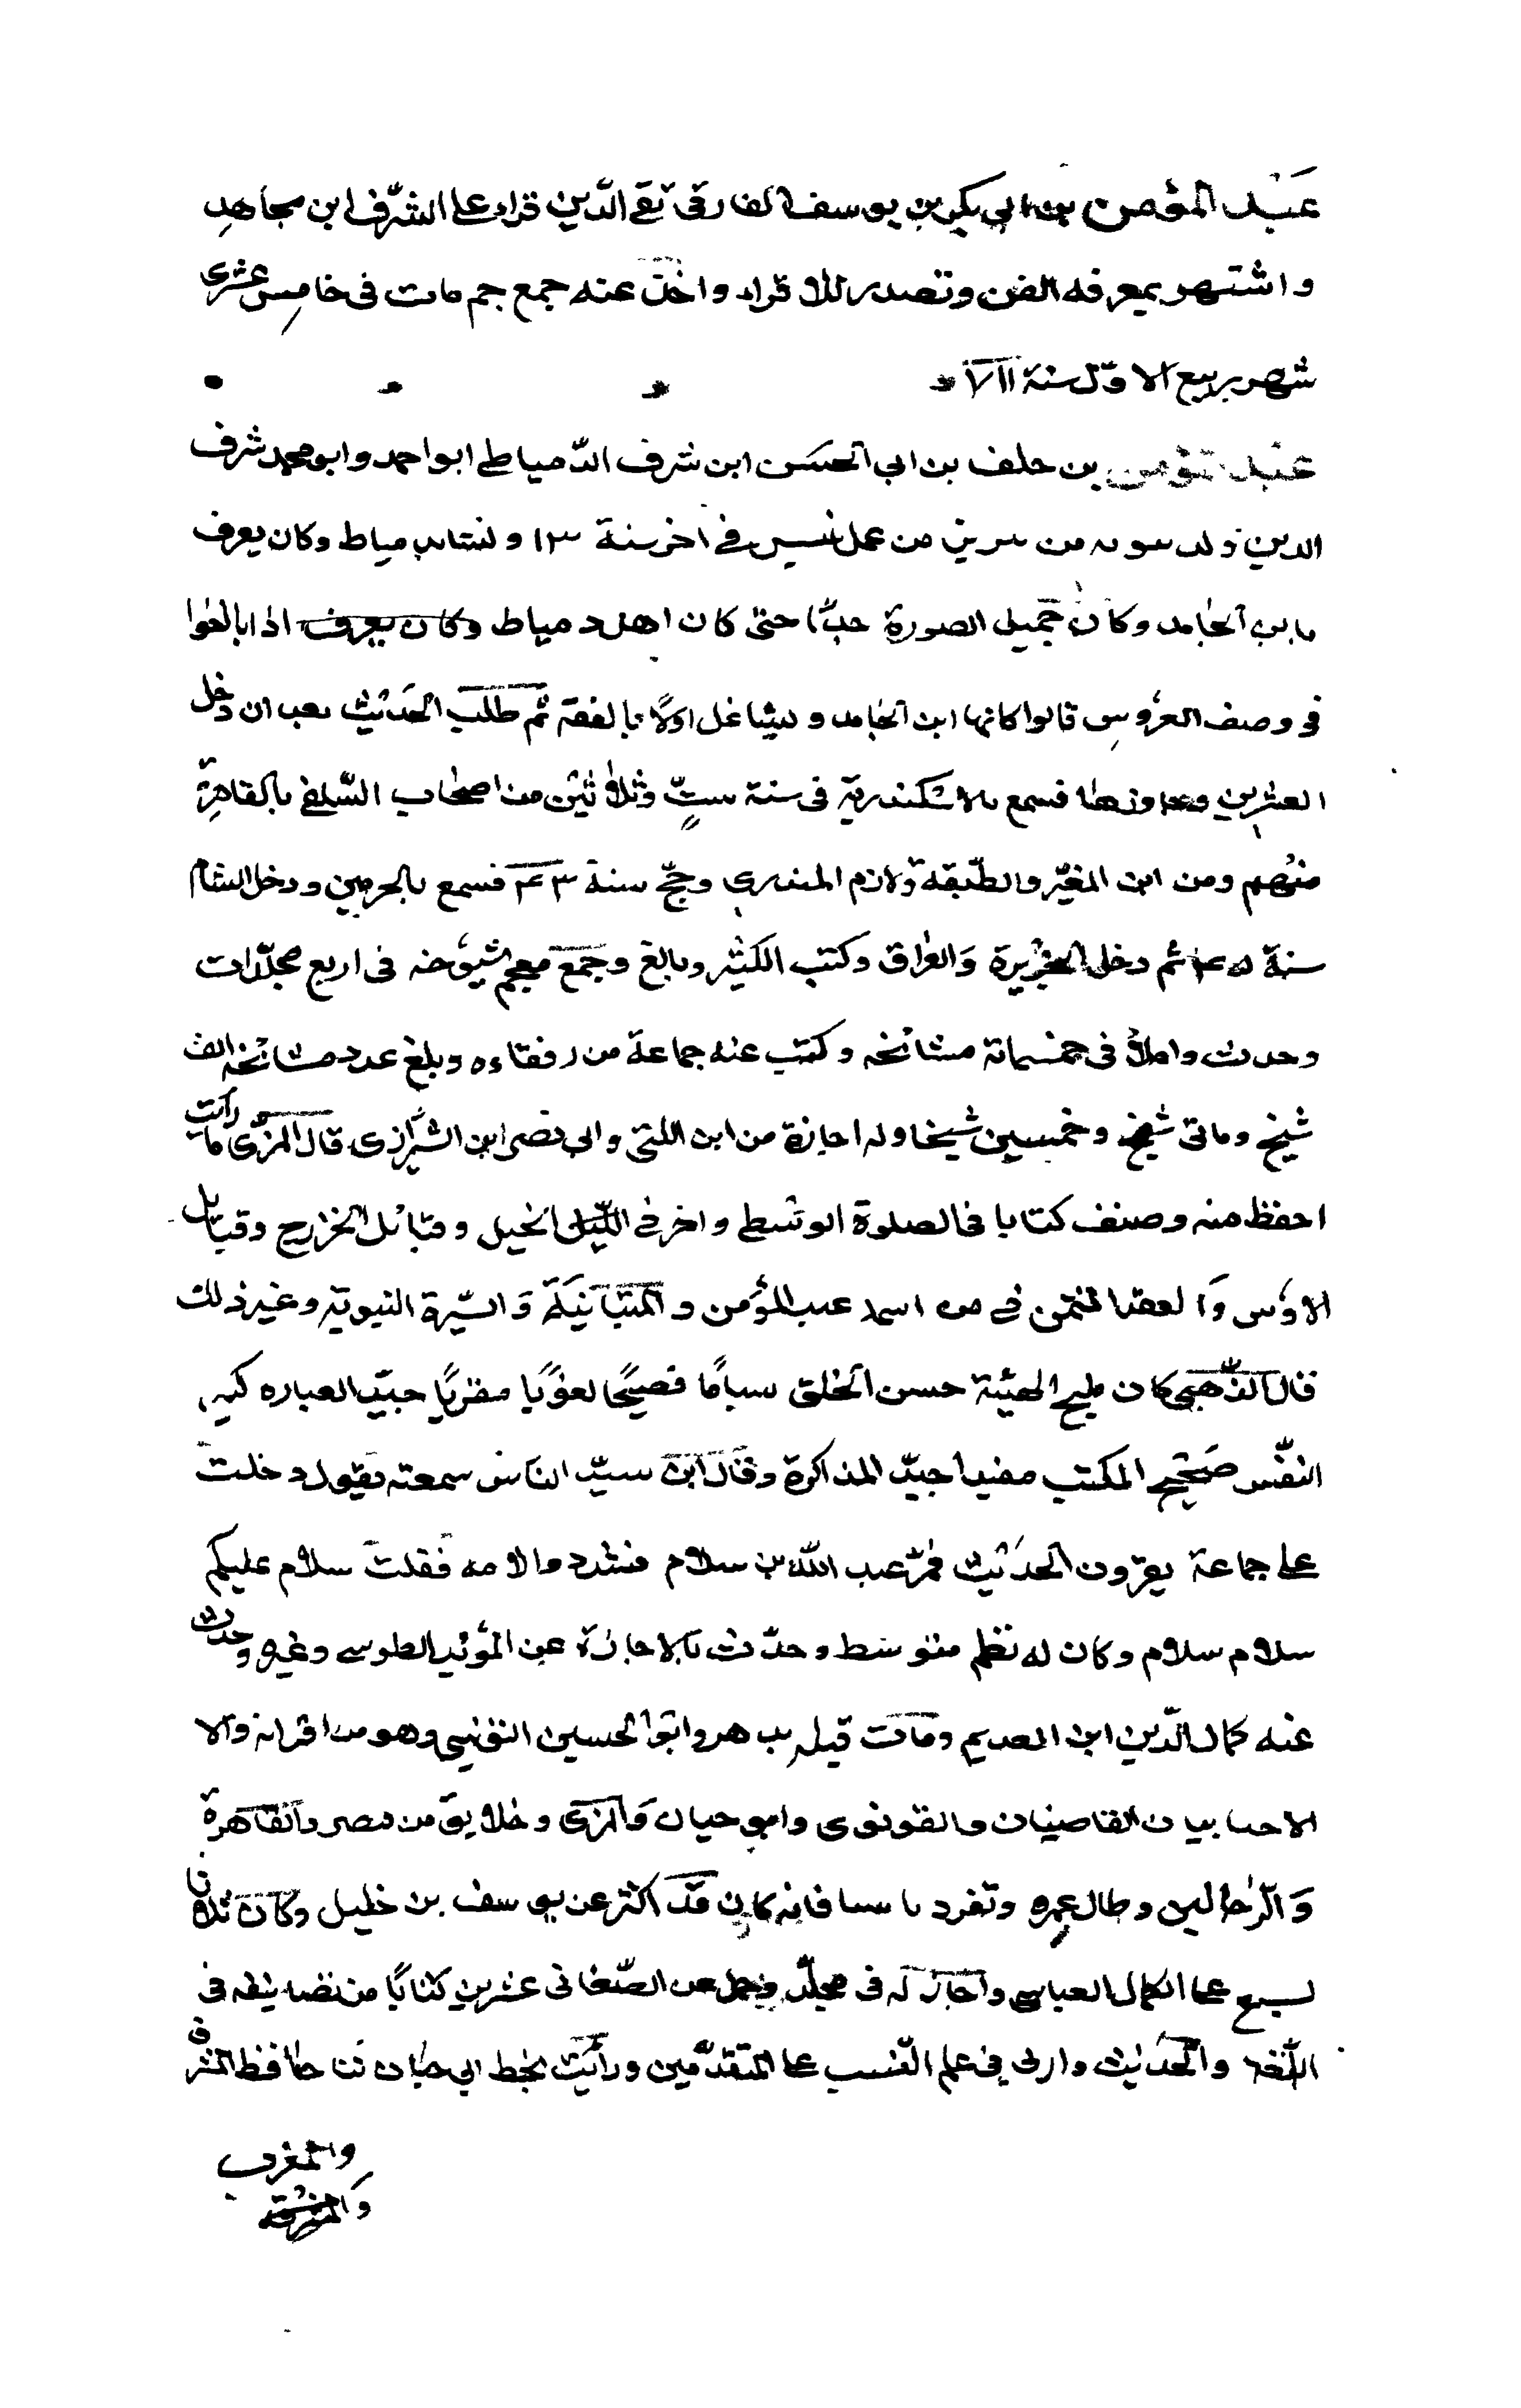 عَبْد المؤمن بن ابي بكر بن يوسف الفارقى تقي الدّين قراء على الشرّف ابن مجاهد
واشتهر بمعرفه الفن وتصدر للاقراء واخذ عنه جمع جم مات فى خامس عشرى
شهر ربيع الاوّل سنة ٧١١
عبد المؤمن بن خلف بن ابي الحسَن ابن شرف الدّمياطي ابو احمد وابو محمد شرف
الدين ولد من عمل تنيس في اخر سنة ١٣ ونشاء بدمياط وكان يعرف
بابن الجامد وكان جميل الصورة جدًّا حتى كان اهل دمياط وكان يعرف اذا بالغوا
فى وصف العرُوس قالوا كانها ابن الجامد وتشاغل اوّلًا بالفقه ثم طلب الحَديث بعد ان دخل
العشرين وجاوزها فسمع بالاسْكندريّة فى سنة ستٍّ وثلاثين من اصحاب السّلفي بالقاهرة
منهم ومن ابن المغيّر والطبقة ولازم المنذري وحجّ سنة ٤٣ فسمع بالحرمين ودخل الشام
سنة ٤٥ ثم دخل الجزيرة وَالعراق وكتب الكثير وبالغ وجمع معجم شيُوخه فى اربع مجلّدات
وحدث واملأ فى حمسمائة مشائخه وكتب عنه جماعة من رفقاءه وبلغ عدد مشائخه الف
شيخ ومائتى شيخ وخمسين شيخا وله اجازة من ابن اللتى وابي نصر ابن الشيرَازى قال المزّى ما رأت
احفظ منه وصنف كتابا فى الصلوة الوسْطى واخر في الخيل وقبائل الخزرج وقبائل
الاوْس وَالعقد المثمن في من اسمه عبد المؤمن والمتبَاينَة وَالسّيرة النبويّه وغير ذلك
قال الذّهبى كان مليح الهيْئة حسن الخلق بسامًا فصيحًا لغويًا مقريًا جيّد العباره كبير
النفْس صَحيح المكتب مفيدا جيّد المذاكرة وقال ابن سيّد الناس سمعته يقول دخلت
على جماعة يقرّون الحدَيث فمرّ عبد الله بن سلام فشدد والامه فقلت سلام عليكم
سلام سلام وكان له نظم متوسط وحدّث بالاجازة عن المؤيد الطوسي وغيره وحدث
عنه كمال الدّين ابن العديم ومات قبله بدهر وابوُ الحسين اليونيني وهو من اقرانه والا
القاضيان والقونوى وابو حيان وَالمزى وخلايق من مصر والقاهرة
وَالرحالين وطال عمره وتفرد كان قد اكثر عن يوسف بن خليل وكان تلا
بسبع على الكمال العباسي واجاز له فى مجلّد وحمل عن الصّغانى عشرين كتابًا من تصانيفه فى
اللّغة والحَديث في علم النّسب على المتقدّمين ورأيت بخط ابي حيان ثنا حافظ المشرق
والمغرب